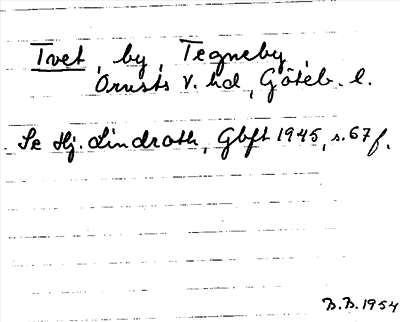 Tvet, by, Tegneby,
Orusts V. hd, Göteb. l.
Se Hj. Lindroth, Gbft 1945, s. 67 f.
B.B. 1954